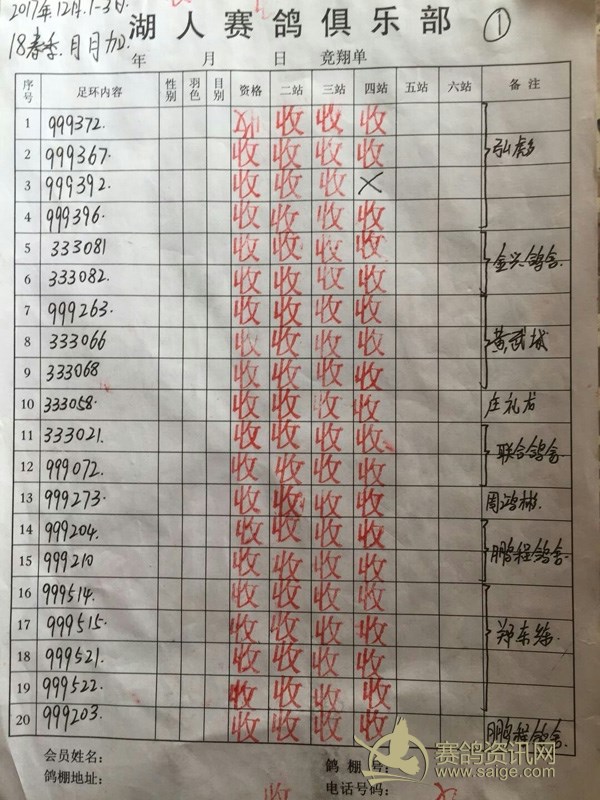 2017年12月.1-3日.
湖人赛鸽俱乐部 ①
18春季.月月加
年 月 日 竞翔单
序号 足环内容 性别 羽色 目别 资格 二站 三站 四站 五站 六站 备注
1 999372. 收 收 收 收
2 999367. 收 收 收 收 弘彪
3 999392. 收 收 收 ×
4 999396. 收 收 收 收
5 333081 收 收 收 收 金兴鸽舍.
6 333082. 收 收 收 收
7 999263. 收 收 收 收
8 333066 收 收 收 收 黄武城
9 333068 收 收 收 收
10 333058. 收 收 收 收 庄礼龙
11 333021. 收 收 收 收 联合鸽舍.
12 999072. 收 收 收 收
13 999273. 收 收 收 收 周鸿彬.
14 999204. 收 收 收 收 鹏程鸽舍.
15 999210 收 收 收 收
16 999514. 收 收 收 收
17 999515. 收 收 收 收 郑东
18 999521. 收 收 收 收
19 999522. 收 收 收 收
20 999203. 收 收 收 收 鹏程鸽舍.
会员姓名: 鸽棚号:
鸽棚地址: 电话号码:
收
赛鸽资讯网
www.saige.com